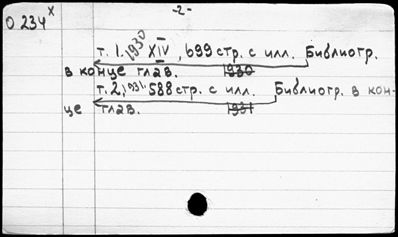 -2-
О 234 х
т. 1. 1930 XIV, 699 стр. с илл. Библиогр.
в конце глав. 1930
т. 2, 1931. 588 стр. с илл. Библиогр. в кон-
це глав. 1931